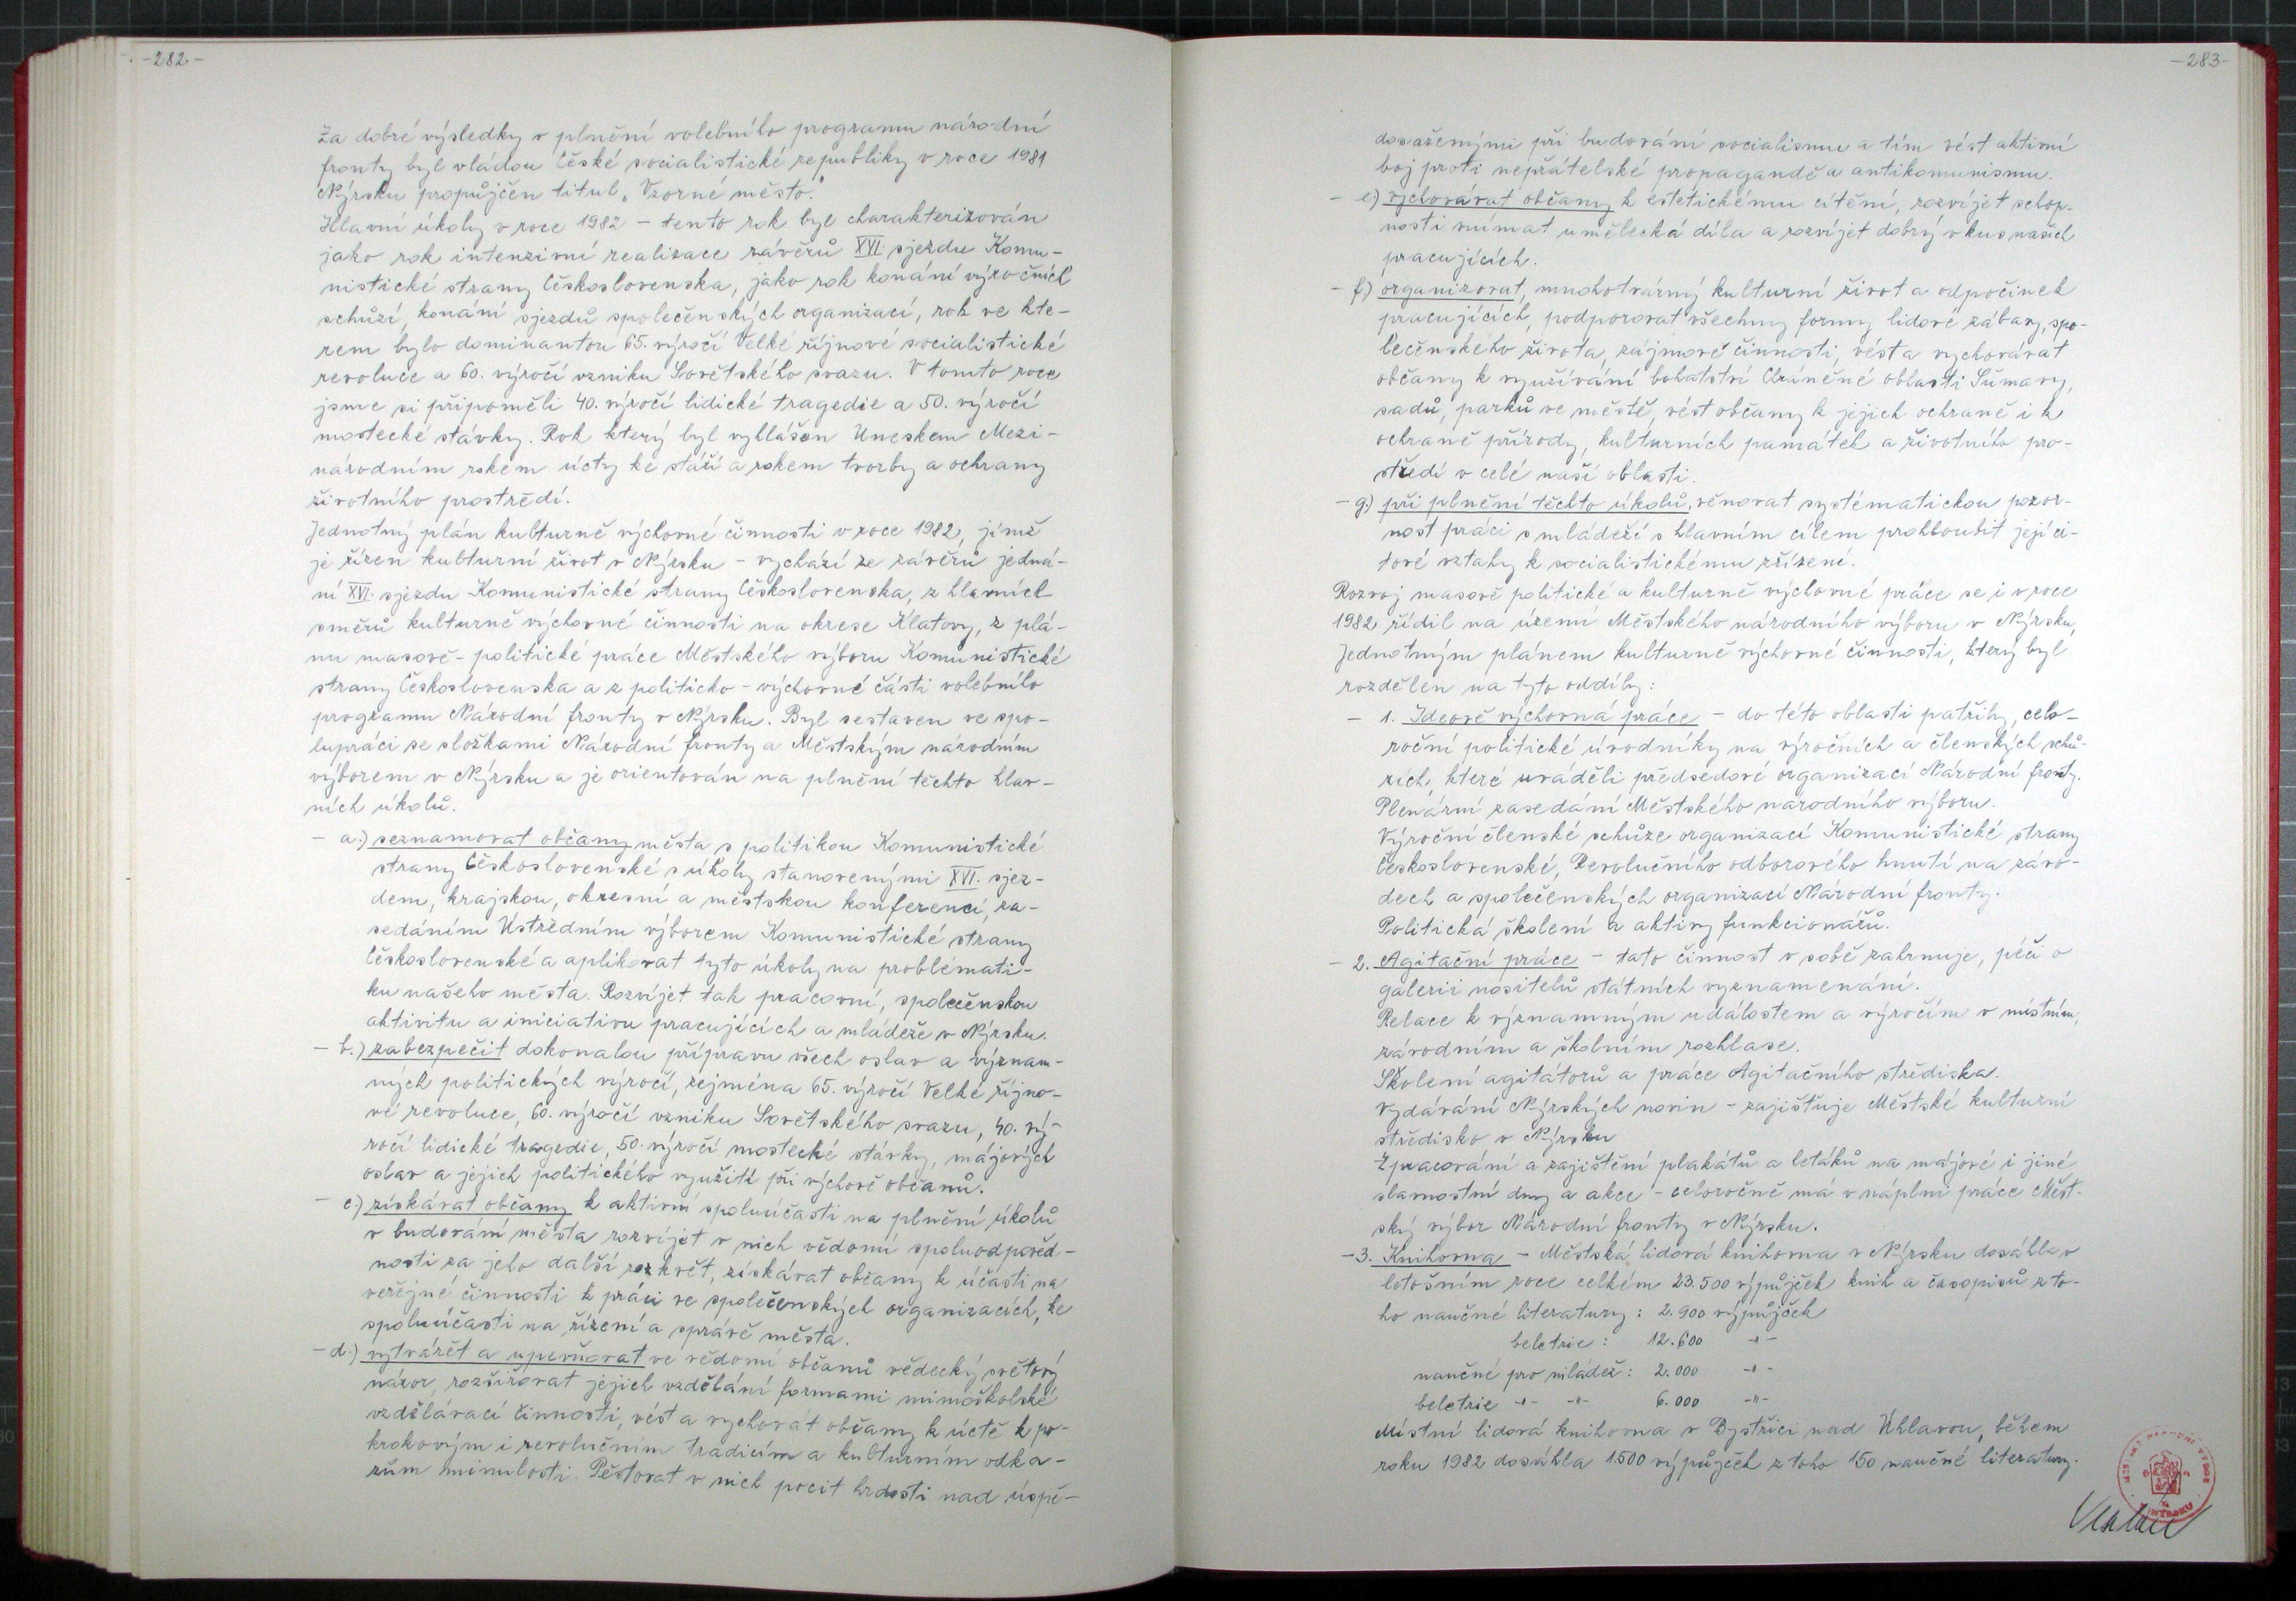 -282-
Za dobré výsledky v plnění volebního programu národní
fronty byl vládou České socialistické republiky v roce 1981
Nýrsku propůjčen titul „Vzorné město."
Hlavní úkoly v roce 1982 - tento rok byl charakterizován
jako rok intenzivní realizace závěrů XVI. sjezdu Komu-
nistické strany Československa, jako rok konání výročních
schůzí, konání sjezdů společenských organizací, rok ve kte-
rem bylo dominantou 65. výročí Velké říjnové socialistické
revoluce a 60. výročí vzniku Sovětského svazu. V tomto roce
jsme si připoměli 40. výročí lidické tragedie a 50. výročí
mostecké stávky. Rok který byl vyhlášen Uneskem Mezi-
národním rokem úcty ke stáří a rokem tvorby a ochrany
životního prostředí.
Jednotný plán kulturně výchovné činnosti v roce 1982, jímž
je řízen kulturní život v Nýrsku - vychází ze závěrů jedná-
ní XVI. sjezdu Komunistické strany Československa, z hlavních
směrů kulturně výchovné činnosti na okrese Klatovy, z plá-
nu masově-politické práce Městského výboru Komunistické
strany Československa a z politicko-výchovné části volebního
programu Národní fronty v Nýrsku. Byl sestaven ve spo-
lupráci se složkami Národní fronty a Městským národním
výborem v Nýrsku a je orientován na plnění těchto hlav-
ních úkolů.
- a.) seznamovat občany města s politikou Komunistické
strany Československé s úkoly stanovenými XVI. sjez-
dem, krajskou, okresní a městskou konferencí, za-
sedáním Ústředním výborem Komunistické strany
Československé a aplikovat tyto úkoly na problémati-
ku našeho města. Rozvíjet tak pracovní, společenskou
aktivitu a iniciativu pracujících a mládeže v Nýrsku.
- b.) zabezpečit dokonalou přípravu všech oslav a význam-
ných politických výročí, zejména 65. výročí Velké říjno-
vé revoluce, 60. výročí vzniku Sovětského svazu, 40. vý-
ročí lidické tragedie, 50. výročí mostecké stávky, májových
oslav a jejich politického využití při výchově občanů.
- c.) získávat občany k aktivní spoluúčasti na plnění úkolů
v budování města rozvíjet v nich vědomí spoluodpověd-
nosti za jeho další rozkvět, získávat občany k účasti na
veřejné činnosti k práci ve společenských organizacích, ke
spoluúčasti na řízení a správě města.
- d.) vytvářět a upevňovat ve vědomí občanů vědecký světový
názor, rozšiřovat jejich vzdělání formami mimoškolské
vzdělávací činnosti, vést a vychovát občany k úctě k po-
krokovým i revolučním tradicím a kulturním odka-
zům minulosti. Pěstovat v nich pocit hrdosti nad úspě-
-283-
dosaženými při budování socialismu a tím vést aktivní
boj proti nepřátelské propagandě a antikomunismu.
- e.) vychovávat občany k estétickému cítění, rozvíjet schop-
nosti vnímat umělecká díla a rozvíjet dobrý vkus našich
pracujících.
- f.) organizovat, mnohotvárný kulturní život a odpočinek
pracujících, podporovat všechny formy lidové zábavy, spo-
lečenskeho života, zájmové činnosti, vést a vychovávat
občany k využívání bohatství Chráněné oblasti Šumavy,
sadů, parků ve městě, vést občany k jejich ochraně i k
ochraně přírody, kulturních památek a životního pro-
středí v celé naší oblasti.
- g.) při plnění těchto úkolů, věnovat systématickou pozor-
nost práci s mládeží s hlavním cílem prohloubit její ci-
tové vztahy k socialistickému zřízení.
Rozvoj masově politické a kulturně výchovné práce se i v roce
1982 řídil na území Městského národního výboru v Nýrsku,
Jednotným plánem kulturně výchovné činnosti, který byl
rozdělen na tyto oddíly:
- 1. Ideově výchovná práce - do této oblasti patřily, celo-
roční politické úvodníky na výročních a členských schů-
zích, které uváděli předsedové organizací Národní fronty.
Plenární zasedání Městského národního výboru.
Výroční členské schůze organizací Komunistické strany
Československé, Revolučního odborového hnutí na závo-
dech a společenských organizací Národní fronty.
Politická školení a aktivy funkcionářů.
- 2. Agitační práce - tato činnost v sobě zahrnuje, péči o
galerii nositelů státních vyznamenání.
Relace k významným událostem a výročím v místním,
závodním a školním rozhlase.
Školení agitátorů a práce Agitačního střediska.
Vydávání Nýrských novin - zajišťuje Městské kulturní
středisko v Nýrsku
Zpracování a zajištění plakátů a letáků na májové i jiné
slavnostní dny a akce - celoročně má v náplni práce Měst-
ský výbor Národní fronty v Nýrsku.
- 3. Knihovna - Městská lidová knihovna v Nýrsku dosáhla v
letošním roce celkém 23.500 výpůjček knih a časopisů z to-
ho naučné literatury: 2.900 výpůjček
beletrie: 12.600 -"-
naučné pro mládež: 2.000 -"-
beletrie -"- -"- 6.000 -"-
Místní lidová knihovna v Bystřici nad Úhlavou, během
roku 1982 dosáhla 1.500 výpůjček z toho 150 naučné literatury.